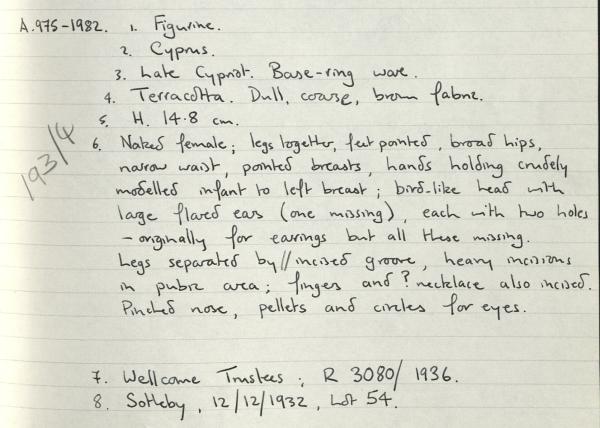 A.975-1982. 1. Figurine.
2. Cyprus.
3. Late Cypriot. Base-ring ware.
4. Terracotta. Dull, coarse, brown fabric.
5. H. 14.8 cm.
193/4
6. Naked female; legs together, feet pointed, broad hips,
narrow waist, pointed breasts, hands holding crudely
modelled infant to left breast; bird-like head with
large flared ears (one missing), each with two holes
- originally for earrings but all these missing.
Legs separated by // incised groove, heavy incisions
in pubic area; fingers and ? necklace also incised.
Pinched nose, pellets and circles for eyes.
7. Wellcome Trustees; R 3080/1936.
8. Sotheby, 12/12/1932, Lot 54.